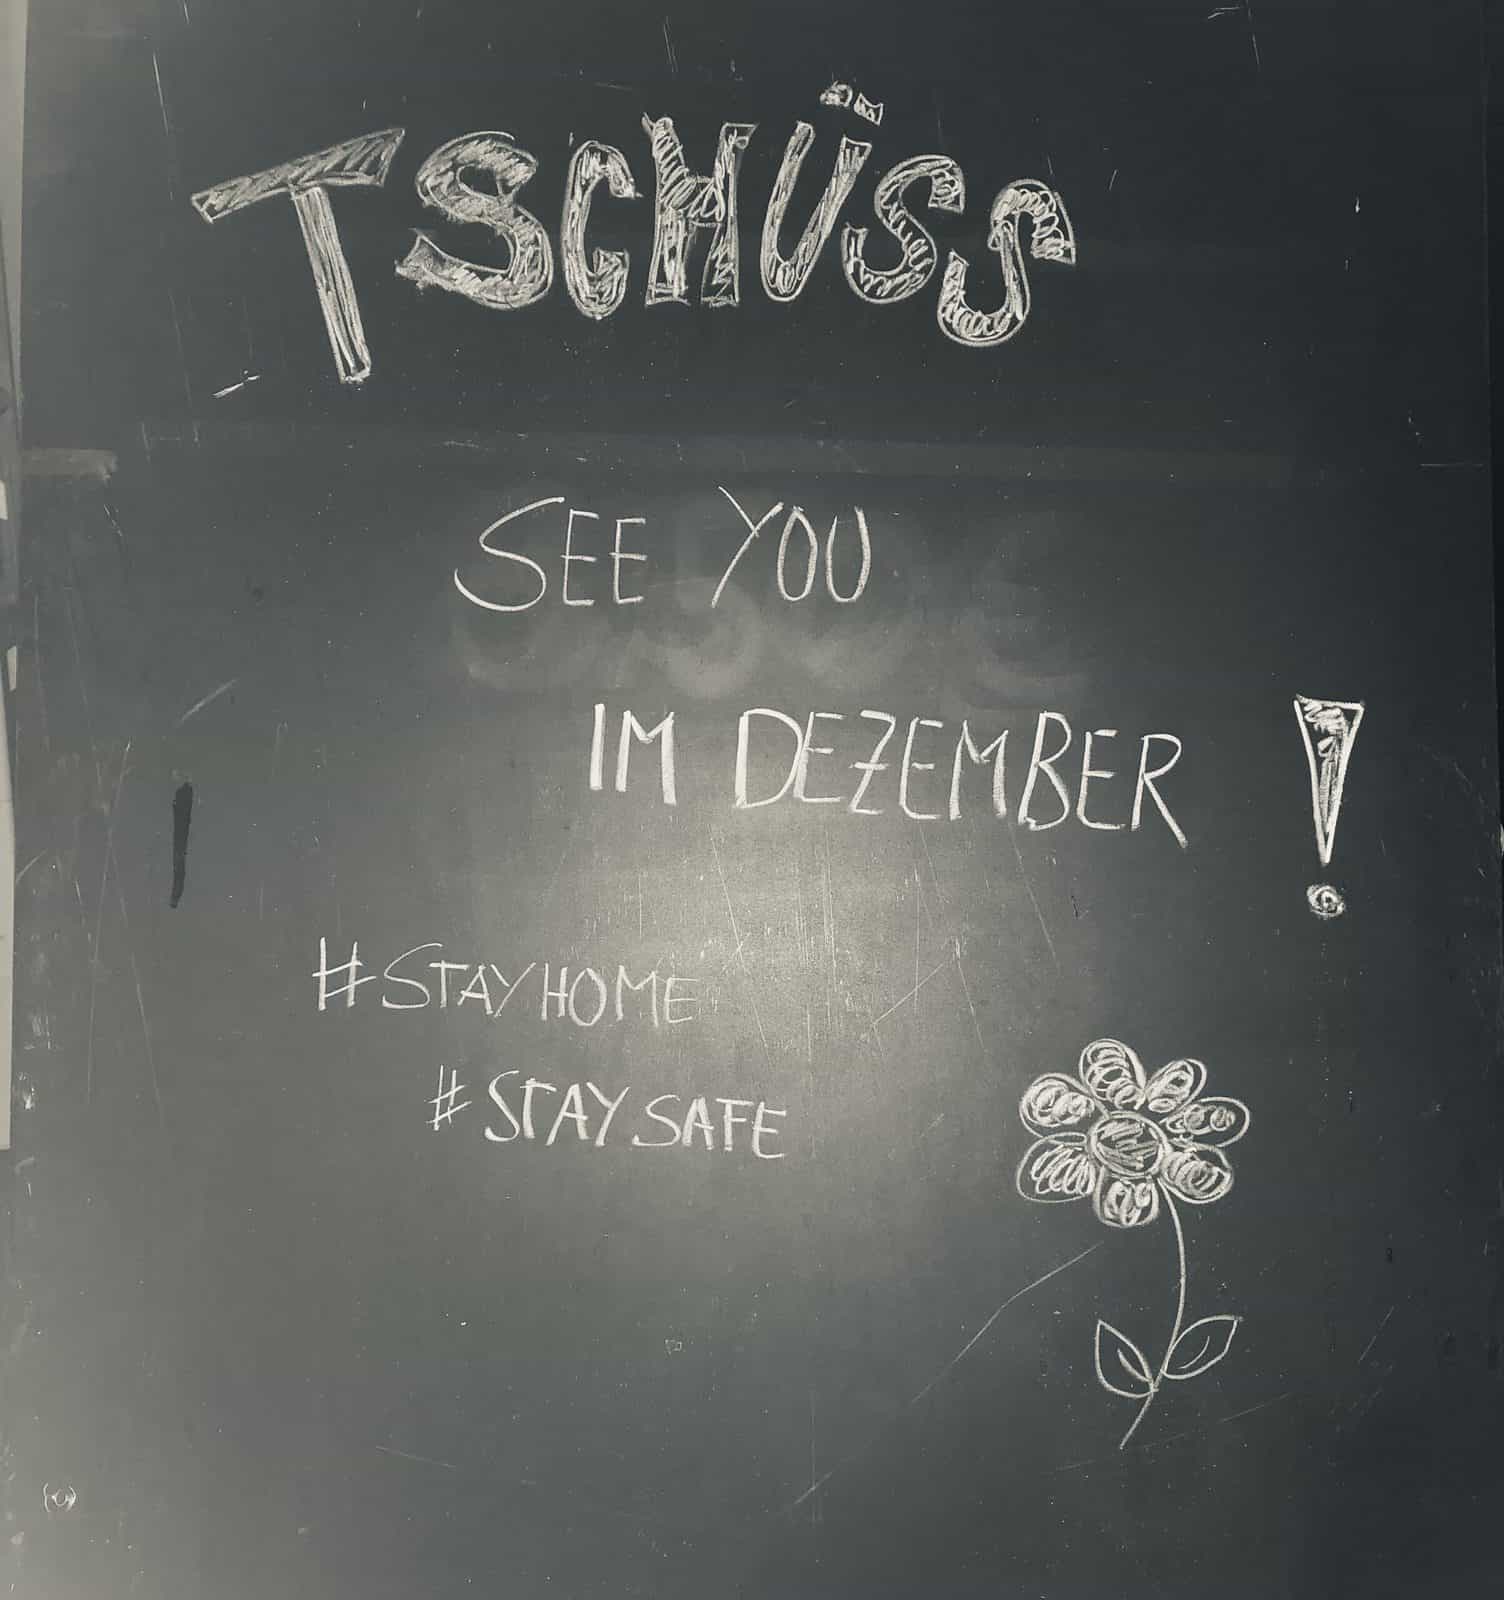 TSCHÜSS
SEE YOU
IM DEZEMBER !
#STAYHOME
#STAY SAFE